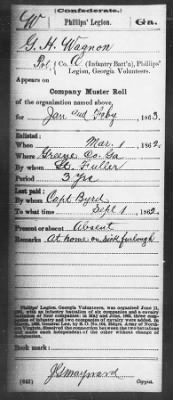 (Confederate.)
W Phillips' Legion. Ga.
G. H. Wagnon
Pvt., Co. A (Infantry Batt'n), Phillips'
Legion, Georgia Volunteers.
Appears on
Company Muster Roll
of the organization named above,
for Jan and Feby, 1863.
Enlisted:
When Mar. 1, 1862.
Where Greene Co. Ga
By whom Lt. Fuller
Period 3 yrs
Last paid:
By whom Capt Byrd
To what time Sept 1, 1862.
Present or absent Absent
Remarks: At home on sick furlough
Phillips' Legion, Georgia Volunteers, was organized June 11,
Book mark:
J S Maynard
(642) Copyist.